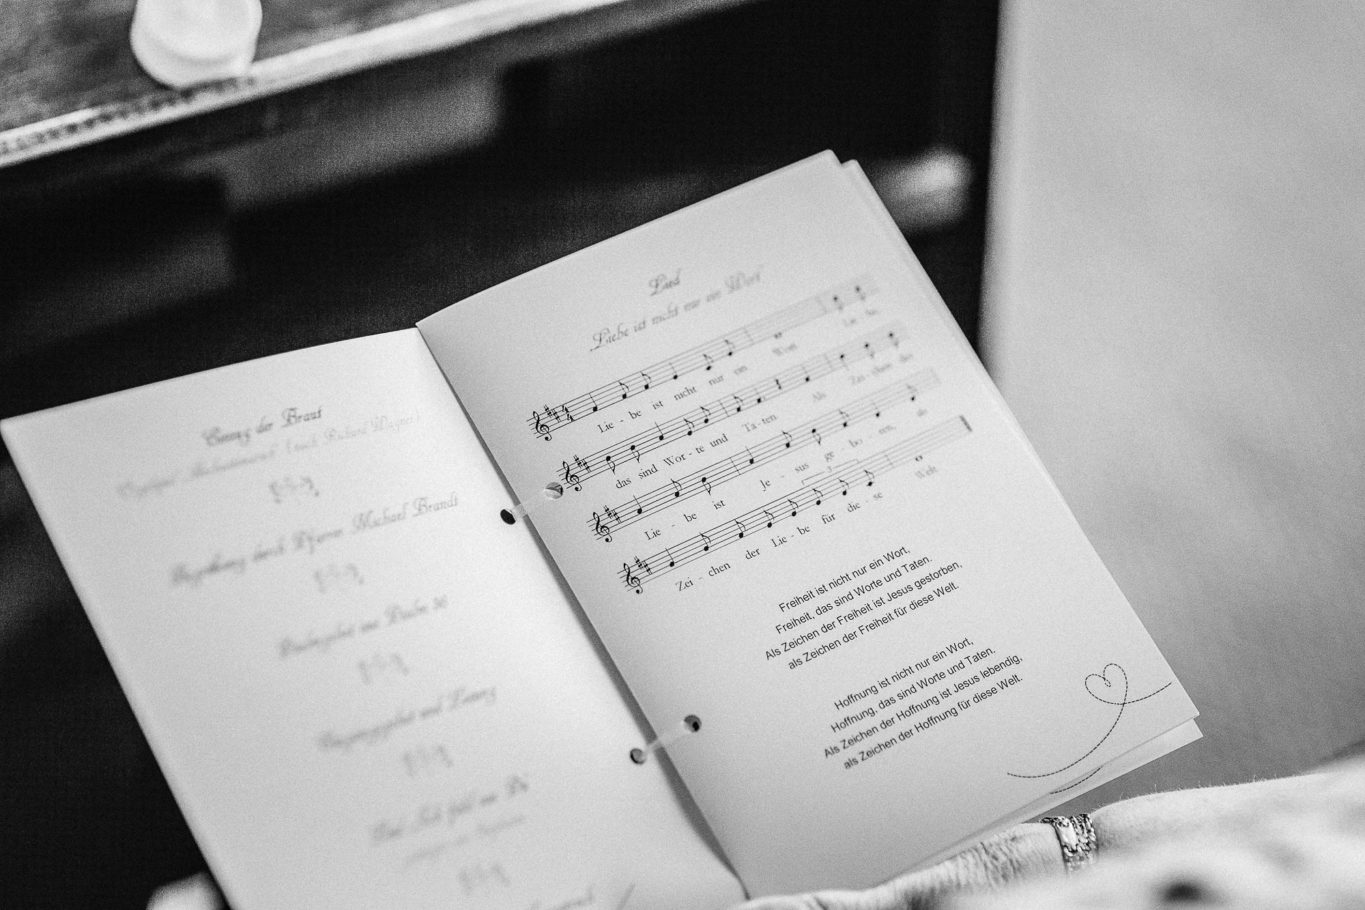 Einzug der Braut
(nach Richard Wagner)
Begrüßung durch Pfarrer Michael Brandt
Lied
Liebe ist nicht nur ein Wort
Lie - be ist nicht nur ein Wort Lie - be,
das sind Wor - te und Ta - ten Als Zei - chen der
Lie - be ist Je - sus ge - bo - ren, als
3
Zei - chen der Lie - be für die - se Welt
Freiheit ist nicht nur ein Wort,
Freiheit, das sind Worte und Taten.
Als Zeichen der Freiheit ist Jesus gestorben,
als Zeichen der Freiheit für diese Welt.
Hoffnung ist nicht nur ein Wort,
Hoffnung, das sind Worte und Taten.
Als Zeichen der Hoffnung ist Jesus lebendig,
als Zeichen der Hoffnung für diese Welt.